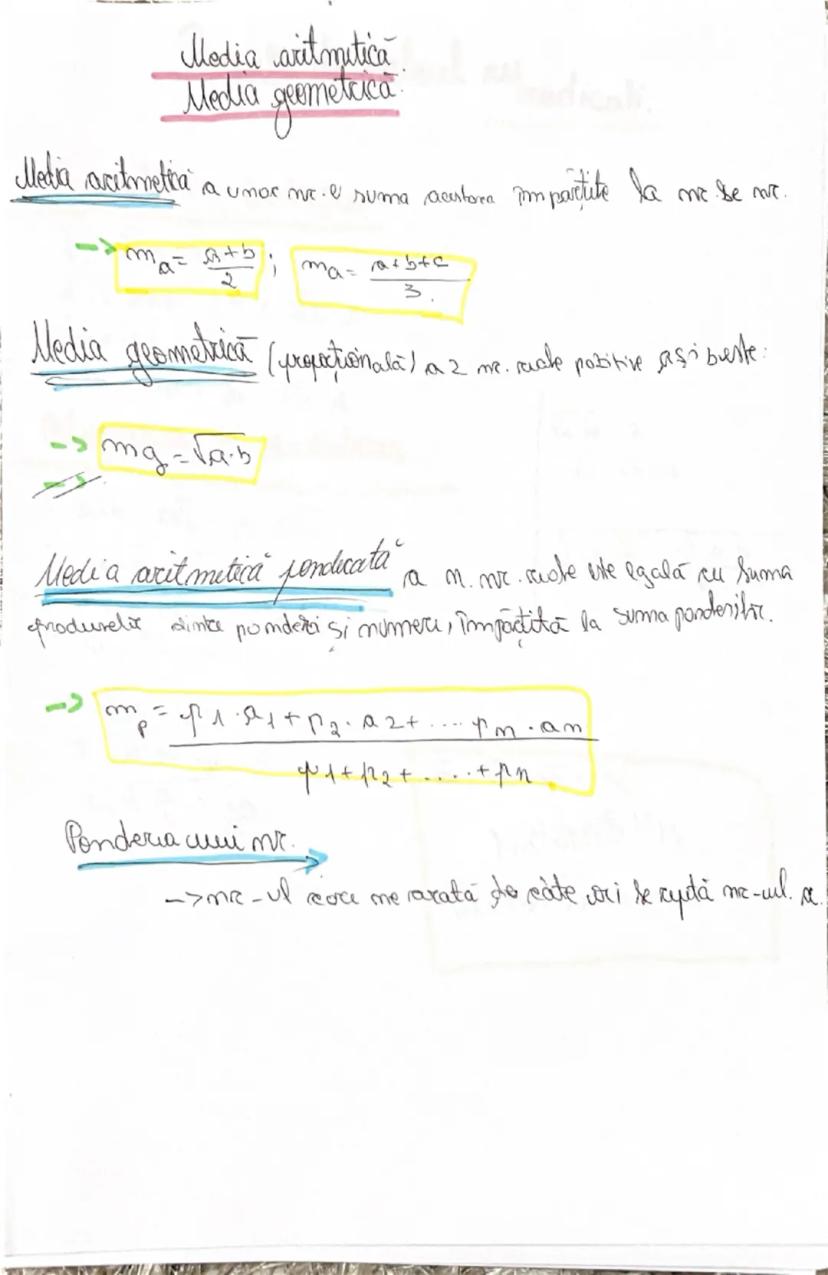 Media aritmetică
Media geometrică
Media aritmetică a unor nr. e suma acestora împărțite la nr de nr.
-> m_a = (a+b)/2 ; m_a = (a+b+c)/3.
Media geometrică (proporțională) a 2 nr. reale pozitive a și b este:
-> mg = √a·b
->
Media aritmetică ponderată a n. nr. reale este egală cu suma
produselor dintre ponderi și numere, împărțită la suma ponderilor.
-> m_p = (p1·a1+p2·a2+....pn·an)/(p1+p2+....+pn)
Ponderea unui nr.
-> nr-ul care ne arată de câte ori se repetă nr-ul. a.